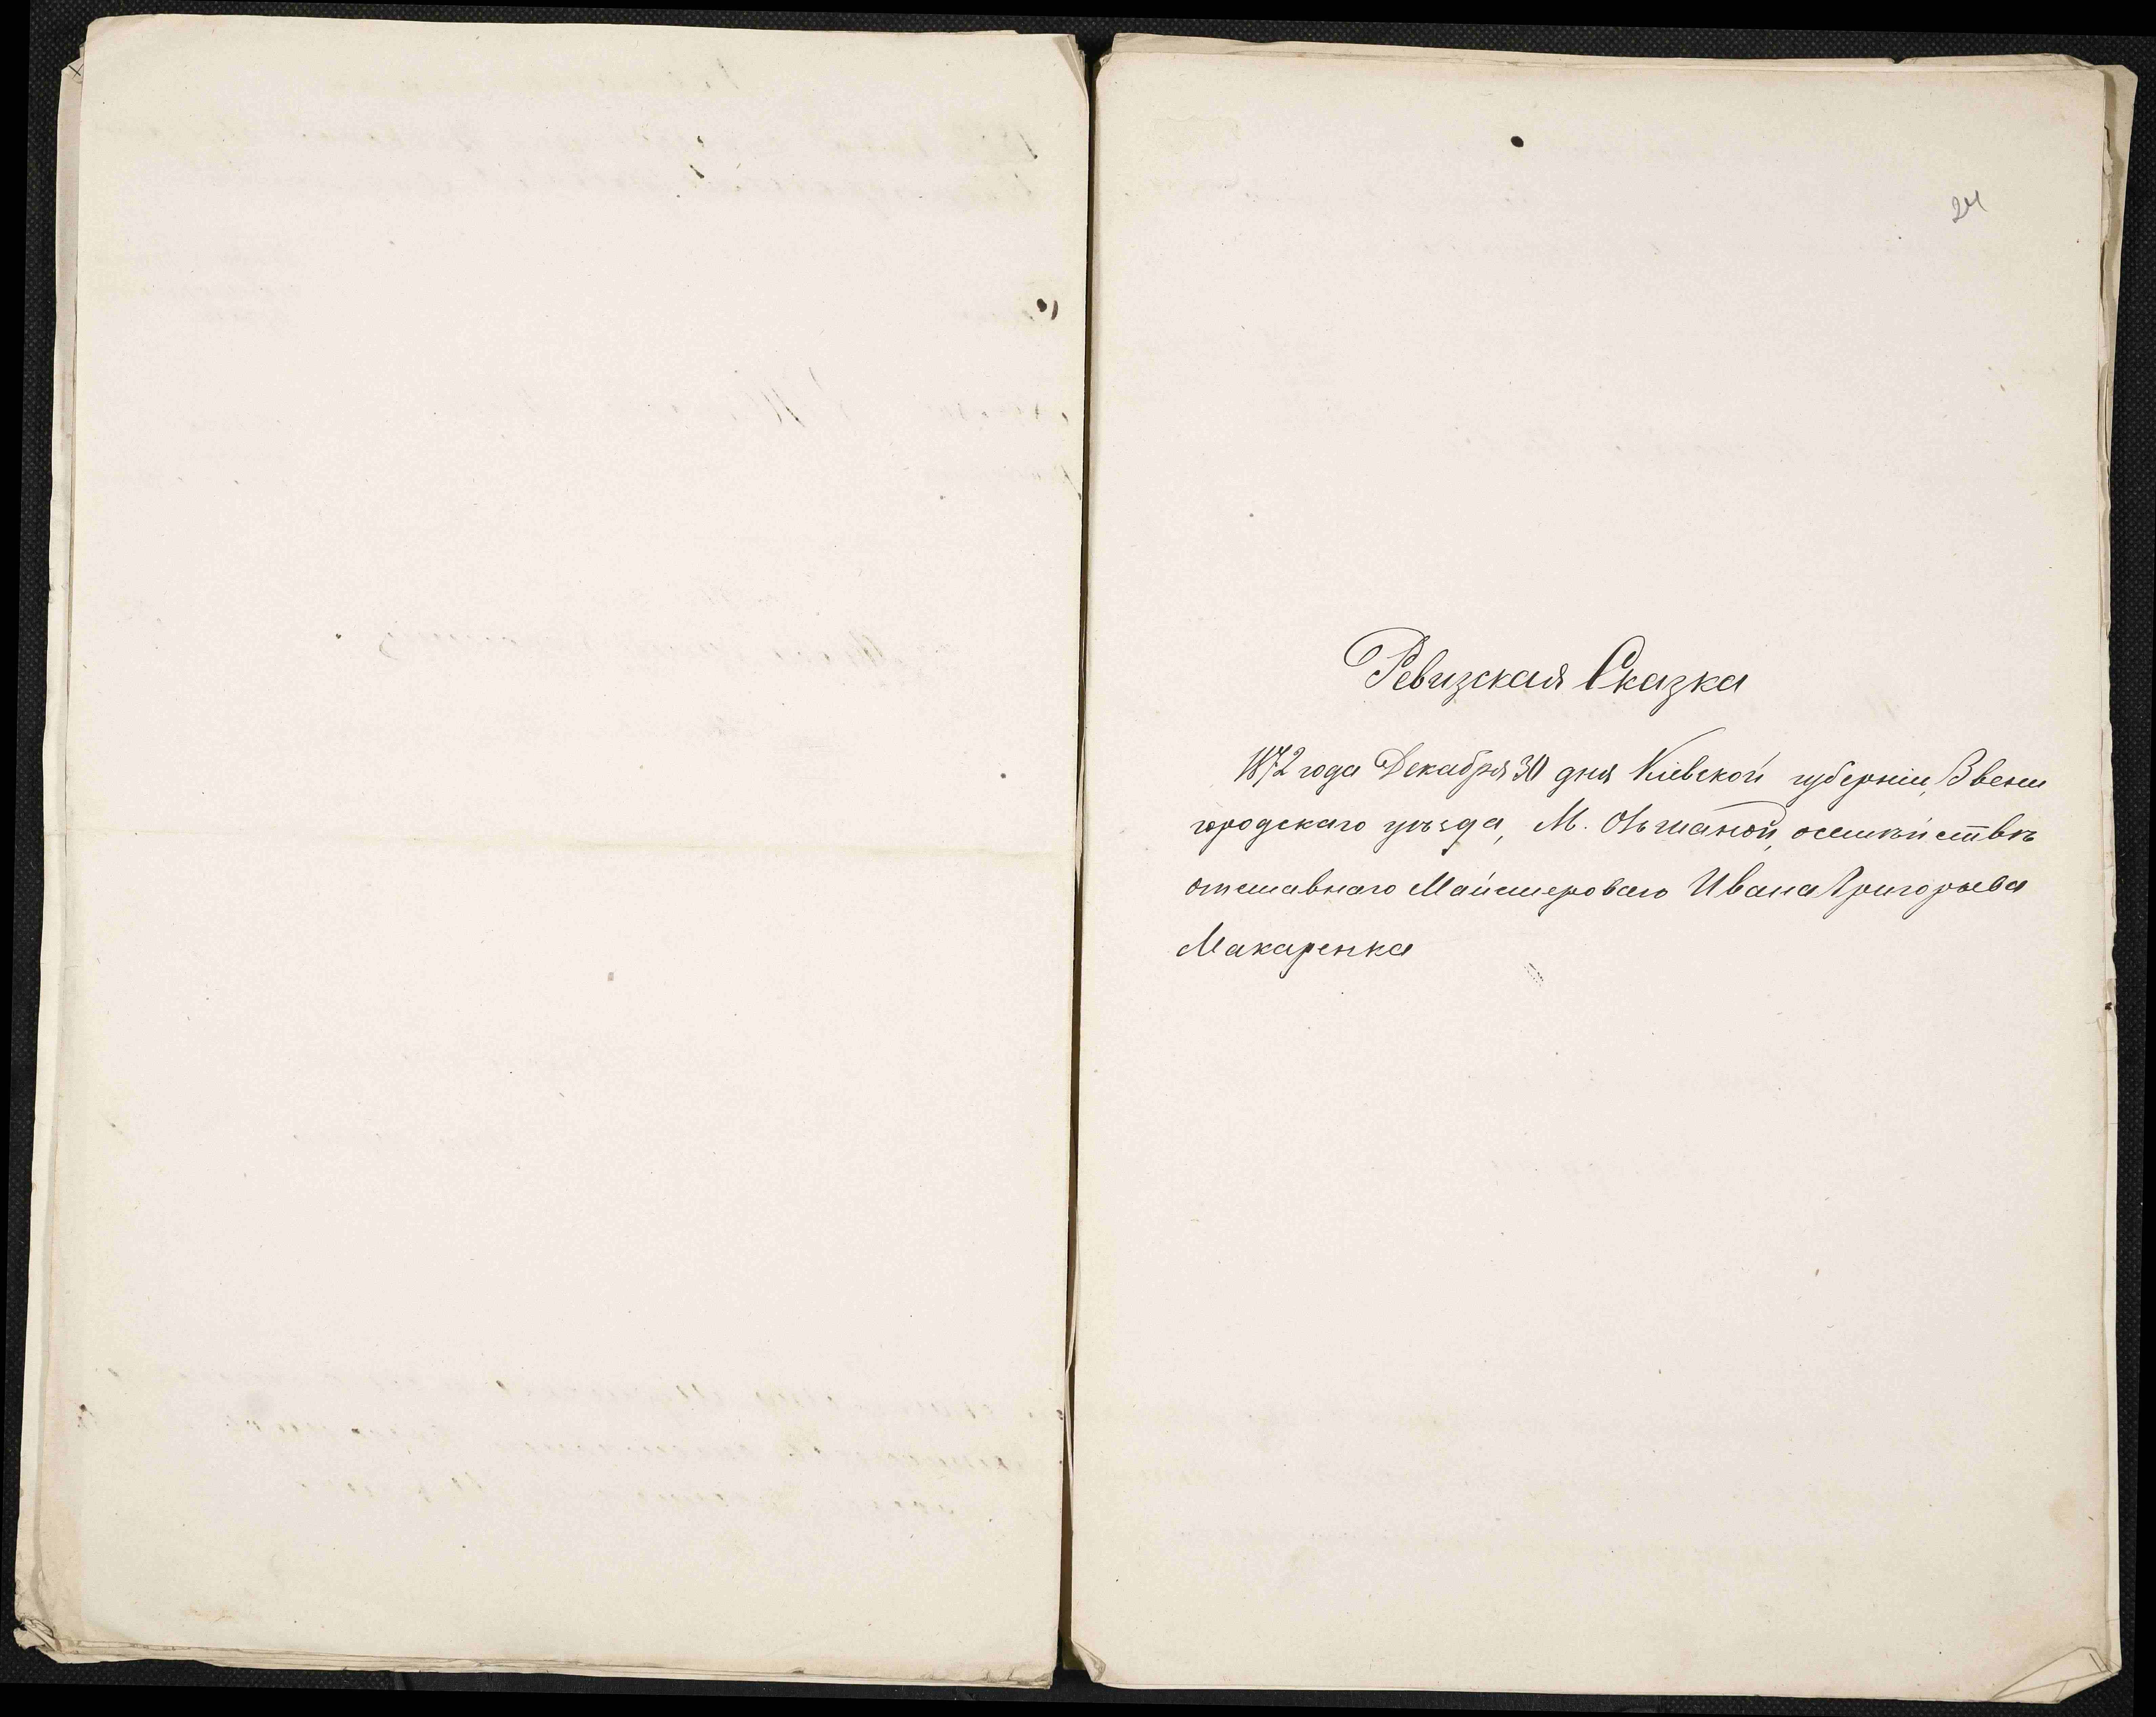 24
Ревизская Сказка
1872 года Декабря 30 дня Кіевской губерніи, Звени
городскаго уѣзда, М. Ольшаной, о семѣйствѣ
отставнаго Майстероваго Ивана Григорьева
Макаренка